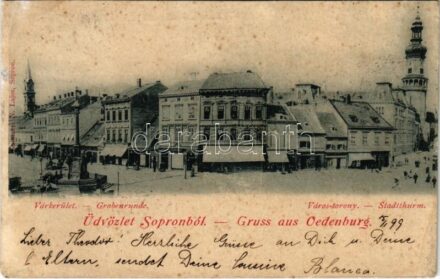 Várkerület. — Grabenrunde.
Város-torony. — Stadtthurm.
Üdvözlet Sopronból. — Gruss aus Oedenburg.
99
Lieber Theodor! Herzliche Grüsse an Dich u. Deine
l. Eltern, sendet Deine Cousine
Blanca
darabanth